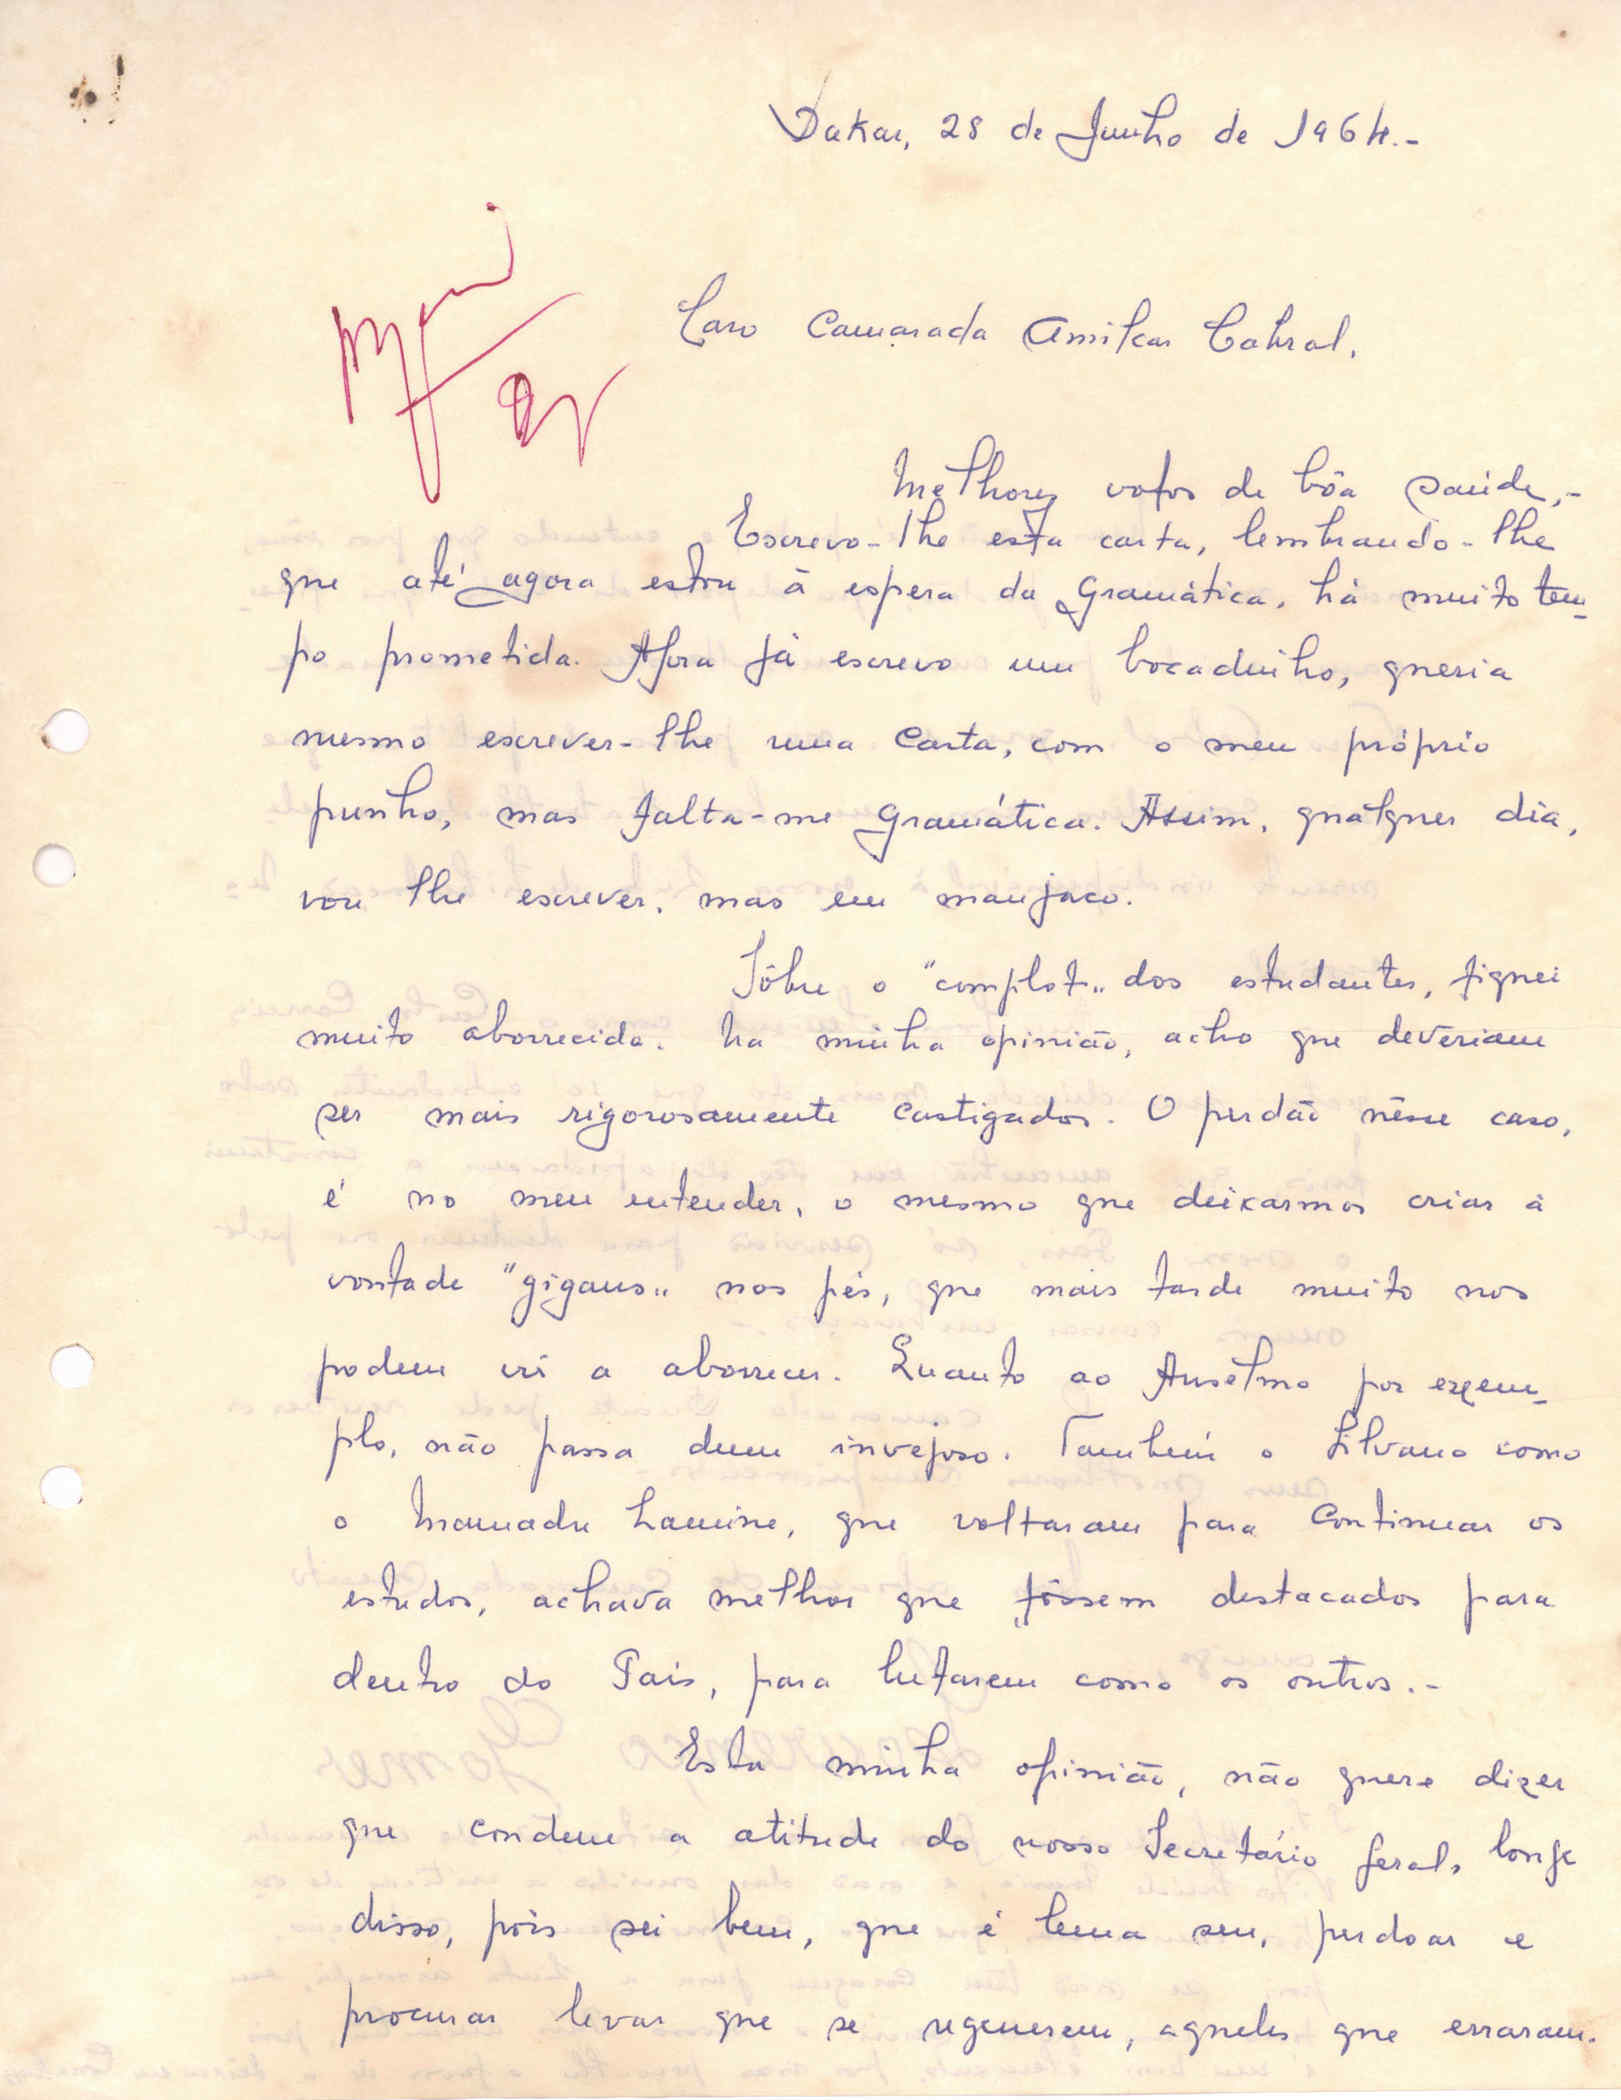 Dakar, 28 de Junho de 1964.-
Caro Camarada Amilcar Cabral,
Melhores votos de bôa saúde,-
Escrevo-lhe esta carta, lembrando-lhe
que até agora estou à espera da Gramática, há muito tem-
po prometida. Agora já escrevo um bocadinho, queria
mesmo escrever-lhe uma Carta, com o meu próprio
punho, mas falta-me Gramática. Assim, qualquer dia,
vou lhe escrever, mas em manjaco.
Sôbre o "complot" dos estudantes, fiquei
muito aborrecido. Na minha opinião, acho que deveriam
ser mais rigorosamente castigados. O perdão nêsse caso,
é no meu entender, o mesmo que deixarmos criar à
vontade "gigans" nos pés, que mais tarde muito nos
podem vir a aborrecer. Quanto ao Anselmo por exem-
plo, não passa dum invejoso. Também o Silvano como
o Mamadu Lamine, que voltaram para Continuar os
estudos, achava melhor que fôssem destacados para
dentro do Pais, para lutarem como os outros.-
Esta minha opinião, não quere dizer
que condene a atitude do nosso Secretário Geral, longe
disso, pois sei bem, que é lema seu, perdoar e
procurar levar que se regenerem, aqueles que erraram.